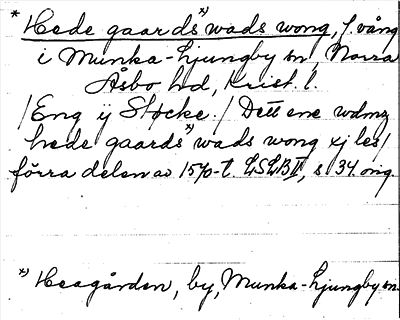 * Hede gaards x) wads wong, f. vång
i Munka-Ljungby sn, Norra
Åsbo hd, Krist. l.
/Eng ÿ Støcke./ Dett ene wdmz
hede gaards x) wads wong xj les/
förra delen av 1570-t. LSLB II, s 34 orig.
x) Heagården, by, Munka-Ljungby sn.